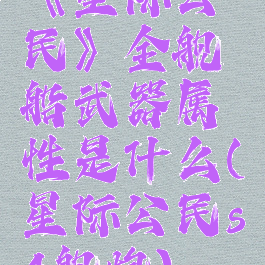 《星际公
民》全舰
船武器属
性是什么(
星际公民s